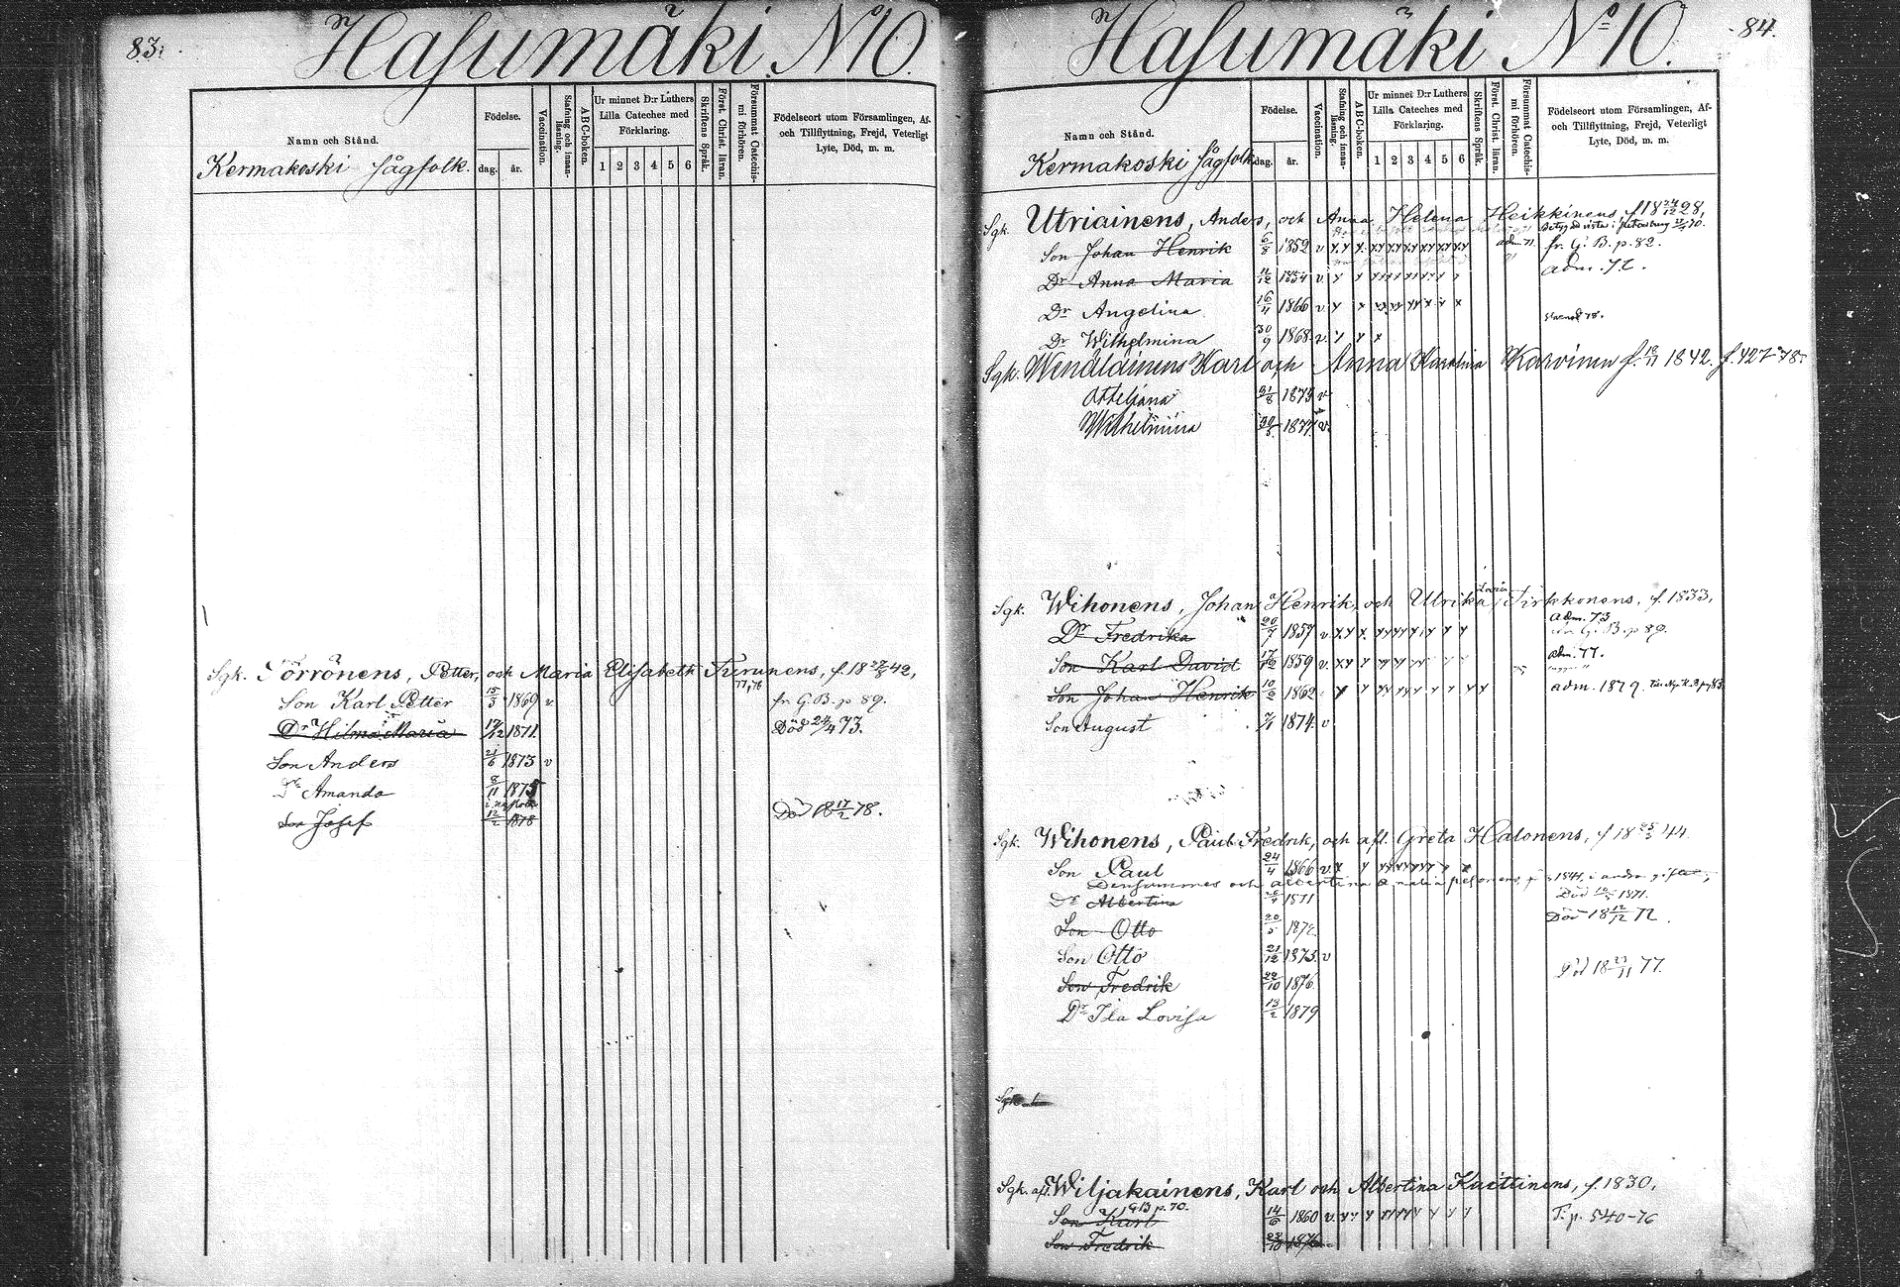 83.
Hasumäki No 10.
Namn och Stånd.
Födelse.
dag.
år.
Vaccination.
Stafning och innan-läsning.
ABC-boken.
Ur minnet D:r Luthers Lilla Cateches med Förklaring.
1 2 3 4 5 6
Skriftens Språk.
Först. Christ. läran.
Försummat Catechis-mi förhören.
Födelseort utom Församlingen, Af- och Tillflyttning, Frejd, Veterligt Lyte, Död, m. m.
Kermakoski sågfolk.
Sgk. Törrönens, Petter, och Maria Elisabeth Turunens, f. 18 42,
Son Karl Petter 15/3 1869 v fr G. B. p 89.
Dr Hilma Maria 1871. Död 73.
Son Anders 21/6 1873 v
Dr Amanda 8/11 1875
Son Josef 12/2 1878 Död 18 17/2 78.
84.
Hasumäki No 10.
Namn och Stånd.
Födelse.
dag.
år.
Vaccination.
Stafning och innan-läsning.
ABC-boken.
Ur minnet D:r Luthers Lilla Cateches med Förklaring.
1 2 3 4 5 6
Skriftens Språk.
Först. Christ. läran.
Försummat Catechis-mi förhören.
Födelseort utom Församlingen, Af- och Tillflyttning, Frejd, Veterligt Lyte, Död, m. m.
Kermakoski sågfolk.
Sgk. Utriainens, Anders, och Anna Helena Heikkinens, f 18 24/12 28,
Son Johan Henrik 6/8 1852 v fr. G. B. p. 82.
Dr Anna Maria 11/12 1854 v adm. 72.
Dr Angelina 16/11 1866 v
Dr Wilhelmina 30/9 1868 v.
Sgk. Wenäläinens Karl och Anna Karolina Karvinen f. 1842. f. 427-78
Otteljana 1875 v
Wilhelmina 1877 v.
Sgk. Wihonens, Johan Henrik, och Ulrika Tirkkonens, f. 1833,
Dr Fredrika 20/7 1857 v adm. 73 G. B. p 89.
Son Karl David 17/12 1859 v. adm. 77.
Son Johan Henrik 1862 adm. 1879.
Son August 7/1 1874 v
Sgk. Wihonens, Paul Fredrik, och afl. Greta Halonens, f 18 44.
Son Paul 24/4 1866 v.
Densammes och Albertina
Dr Albertina 1871 Död 1871.
Son Otto 20/5 1872 Död 18 12/12 72.
Son Otto 21/12 1873 v
Son Fredrik 22/10 1876 Död 18 77.
Dr Ida Lovisa 13/2 1879
Sgk.
Sgk. afl. Wiljakainens, Karl och Albertina Kuittinens, f. 1830,
Son Karl GB p. 70. 14/6 1860 v. T. p. 540-76
Son Fredrik 1876